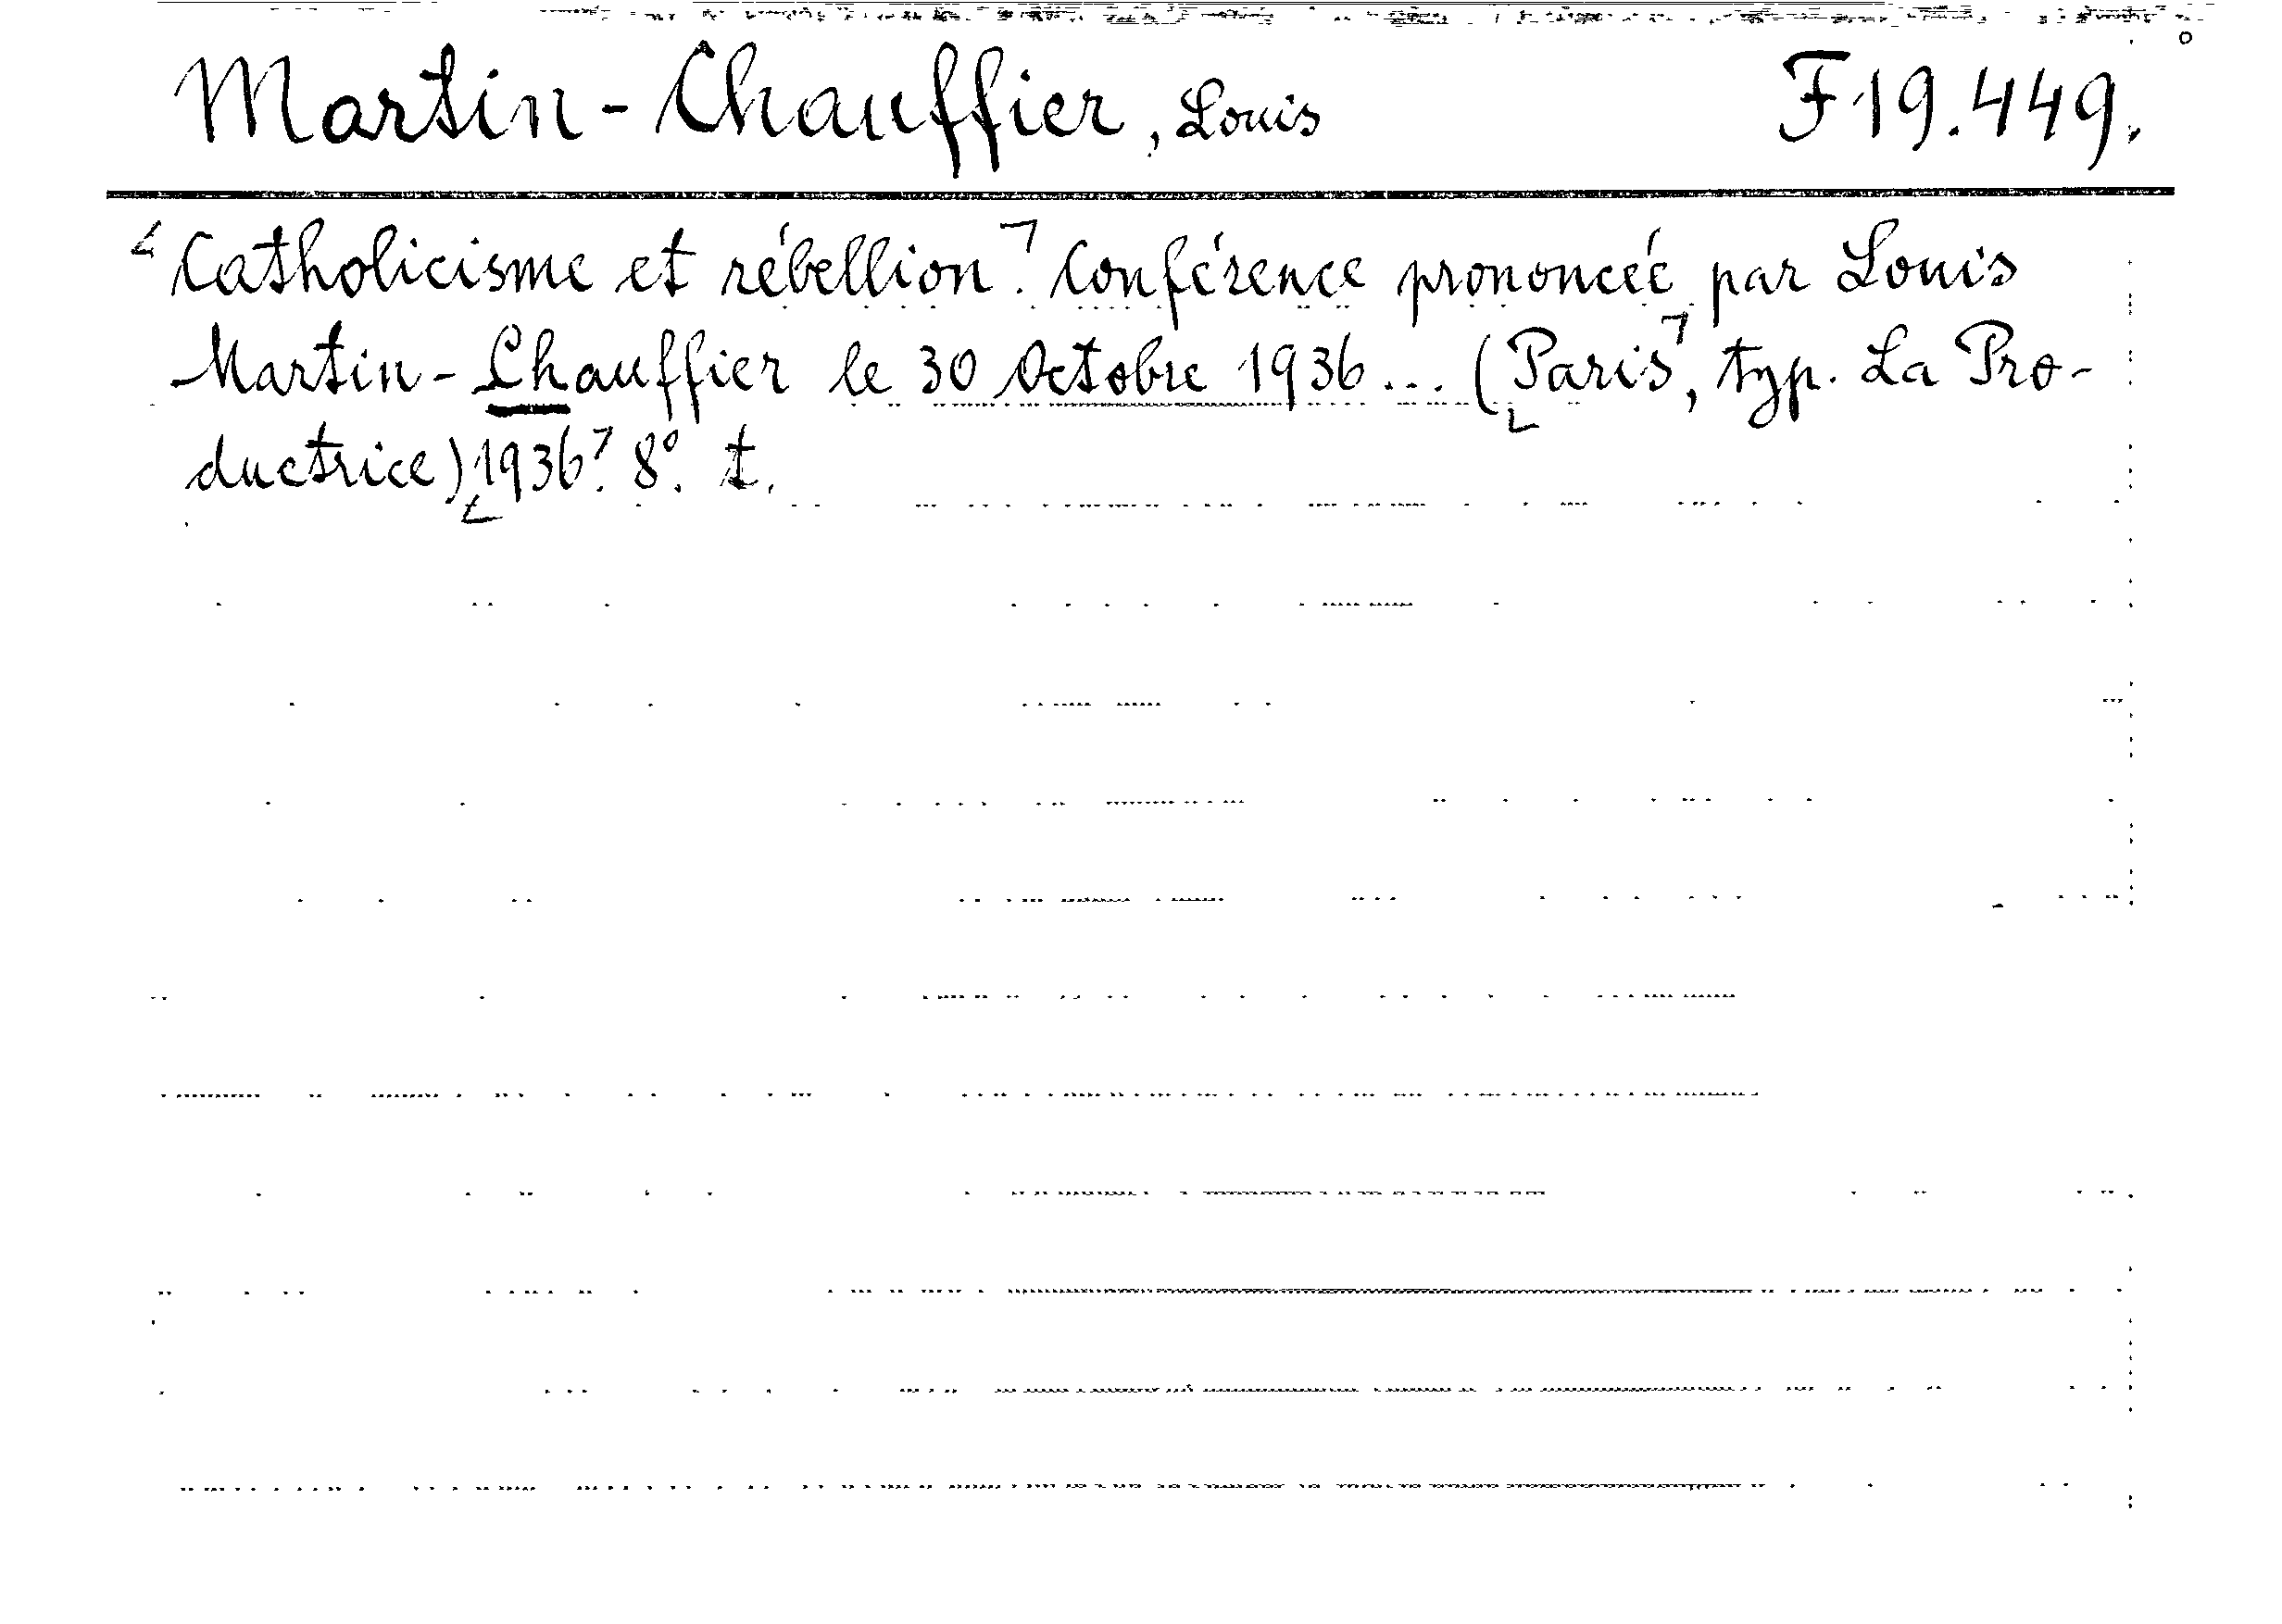 Martin-Chauffier, Louis F 19.449.
Catholicisme et rébellion. Conférence prononcée par Louis
Martin-Chauffier le 30 Octobre 1936... (Paris, typ. La Pro-
ductrice) 1936. 8º. t.